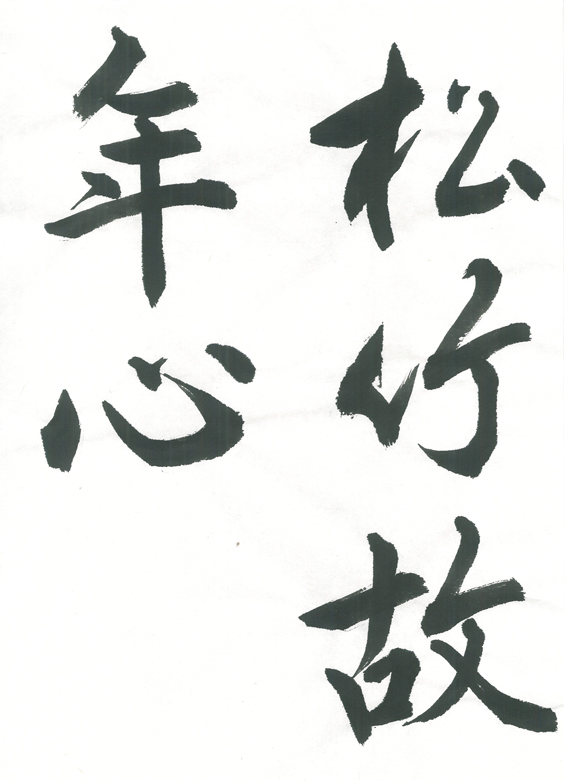 松竹故
年心